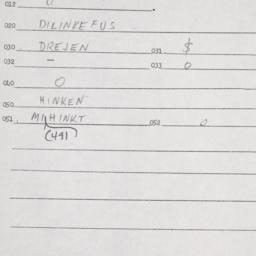 012 0
020 DILINKEFUS
030 DREJEN 031 $
032 - 033 0
040 0
050 HINKEN
051 MIHINKT 052 0
(49)